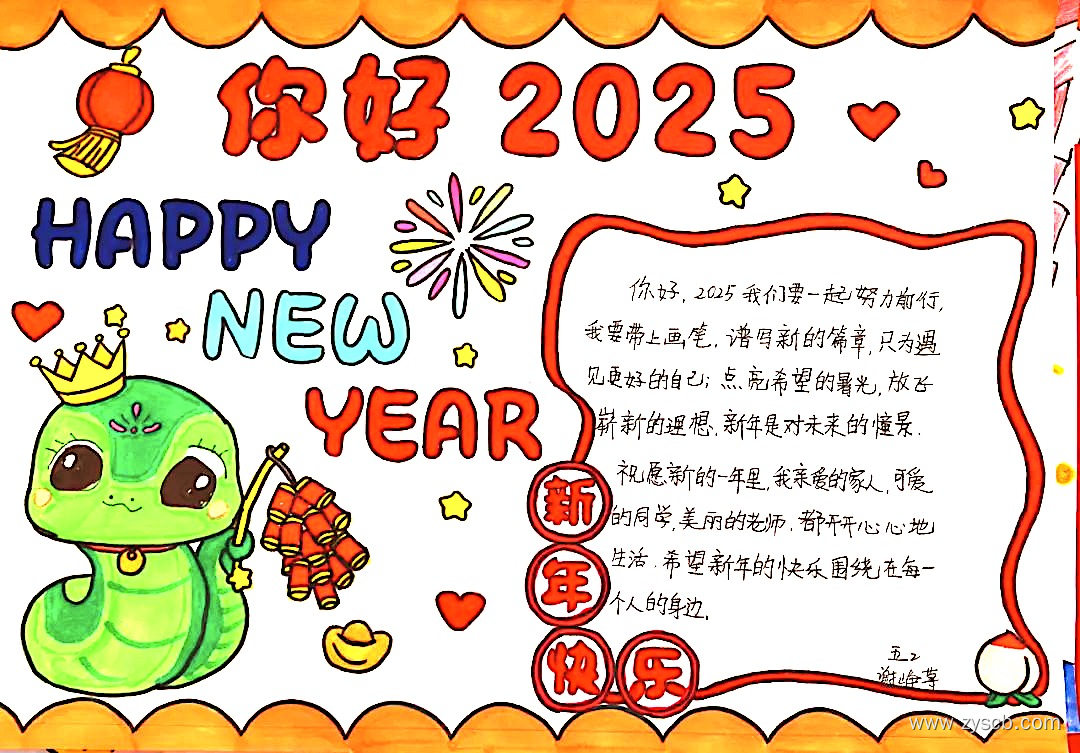 你好 2025
HAPPY
NEW
YEAR
你好，2025我们要一起努力前行，
我要带上画笔，谱写新的篇章，只为遇
见更好的自己；点亮希望的曙光，放飞
崭新的理想，新年是对未来的憧憬.
祝愿新的一年里，我亲爱的家人，可爱
的同学，美丽的老师，都开开心心地
生活.希望新年的快乐围绕在每一
个人的身边.
新
年
快 乐
五2
www.zyscb.com